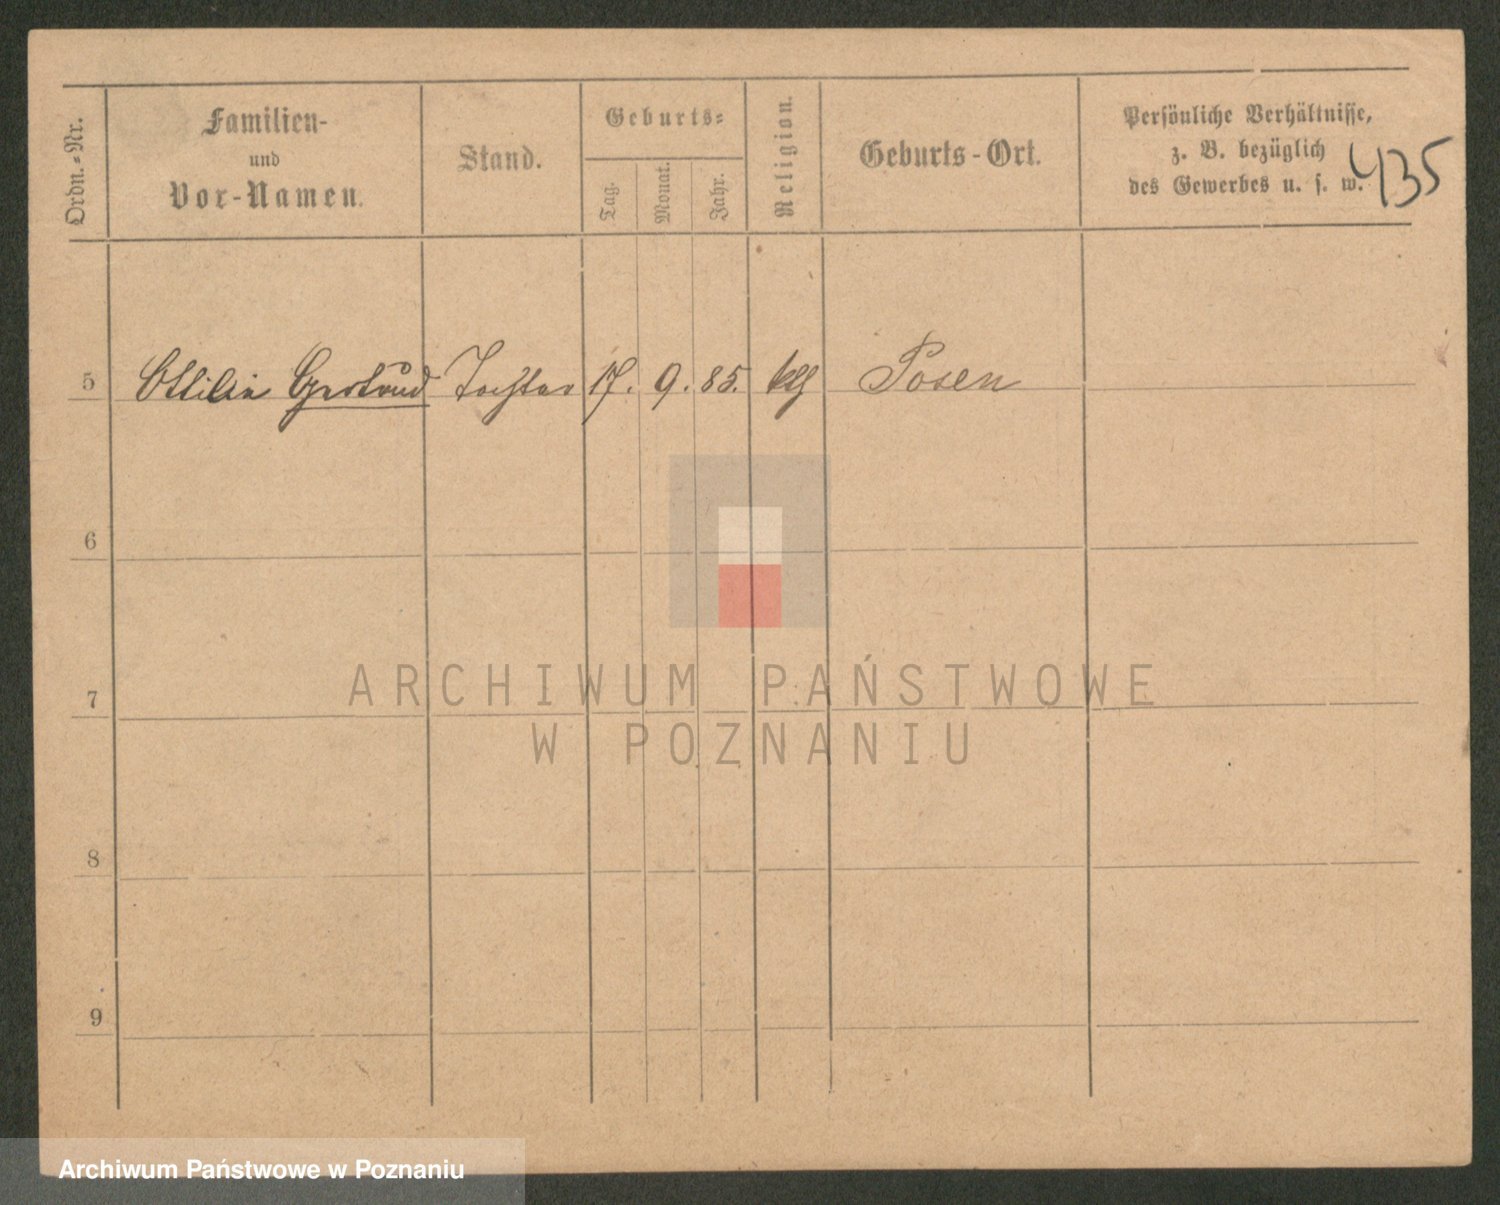 Ordn.-Nr.
Familien-
und
Vor-Namen.
Stand.
Geburts-
Tag.
Monat.
Jahr.
Religion.
Geburts-Ort.
Persönliche Verhältnisse,
z. B. bezüglich
des Gewerbes u. s. w.
435
5 Ottilie Gertrud Tochter 17. 9. 85. Posen
6
7
8
9
ARCHIWUM PAŃSTWOWE
W POZNANIU
Archiwum Państwowe w Poznaniu